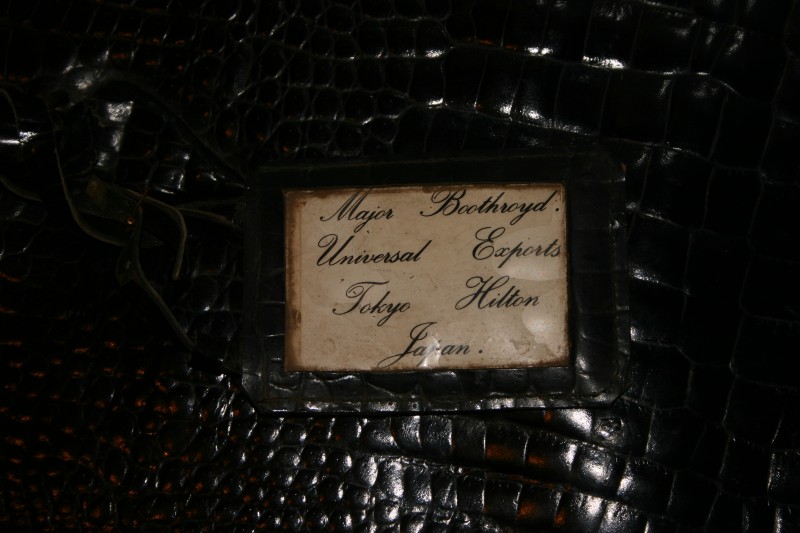 Major Boothroyd.
Universal Exports
Tokyo Hilton
Japan.